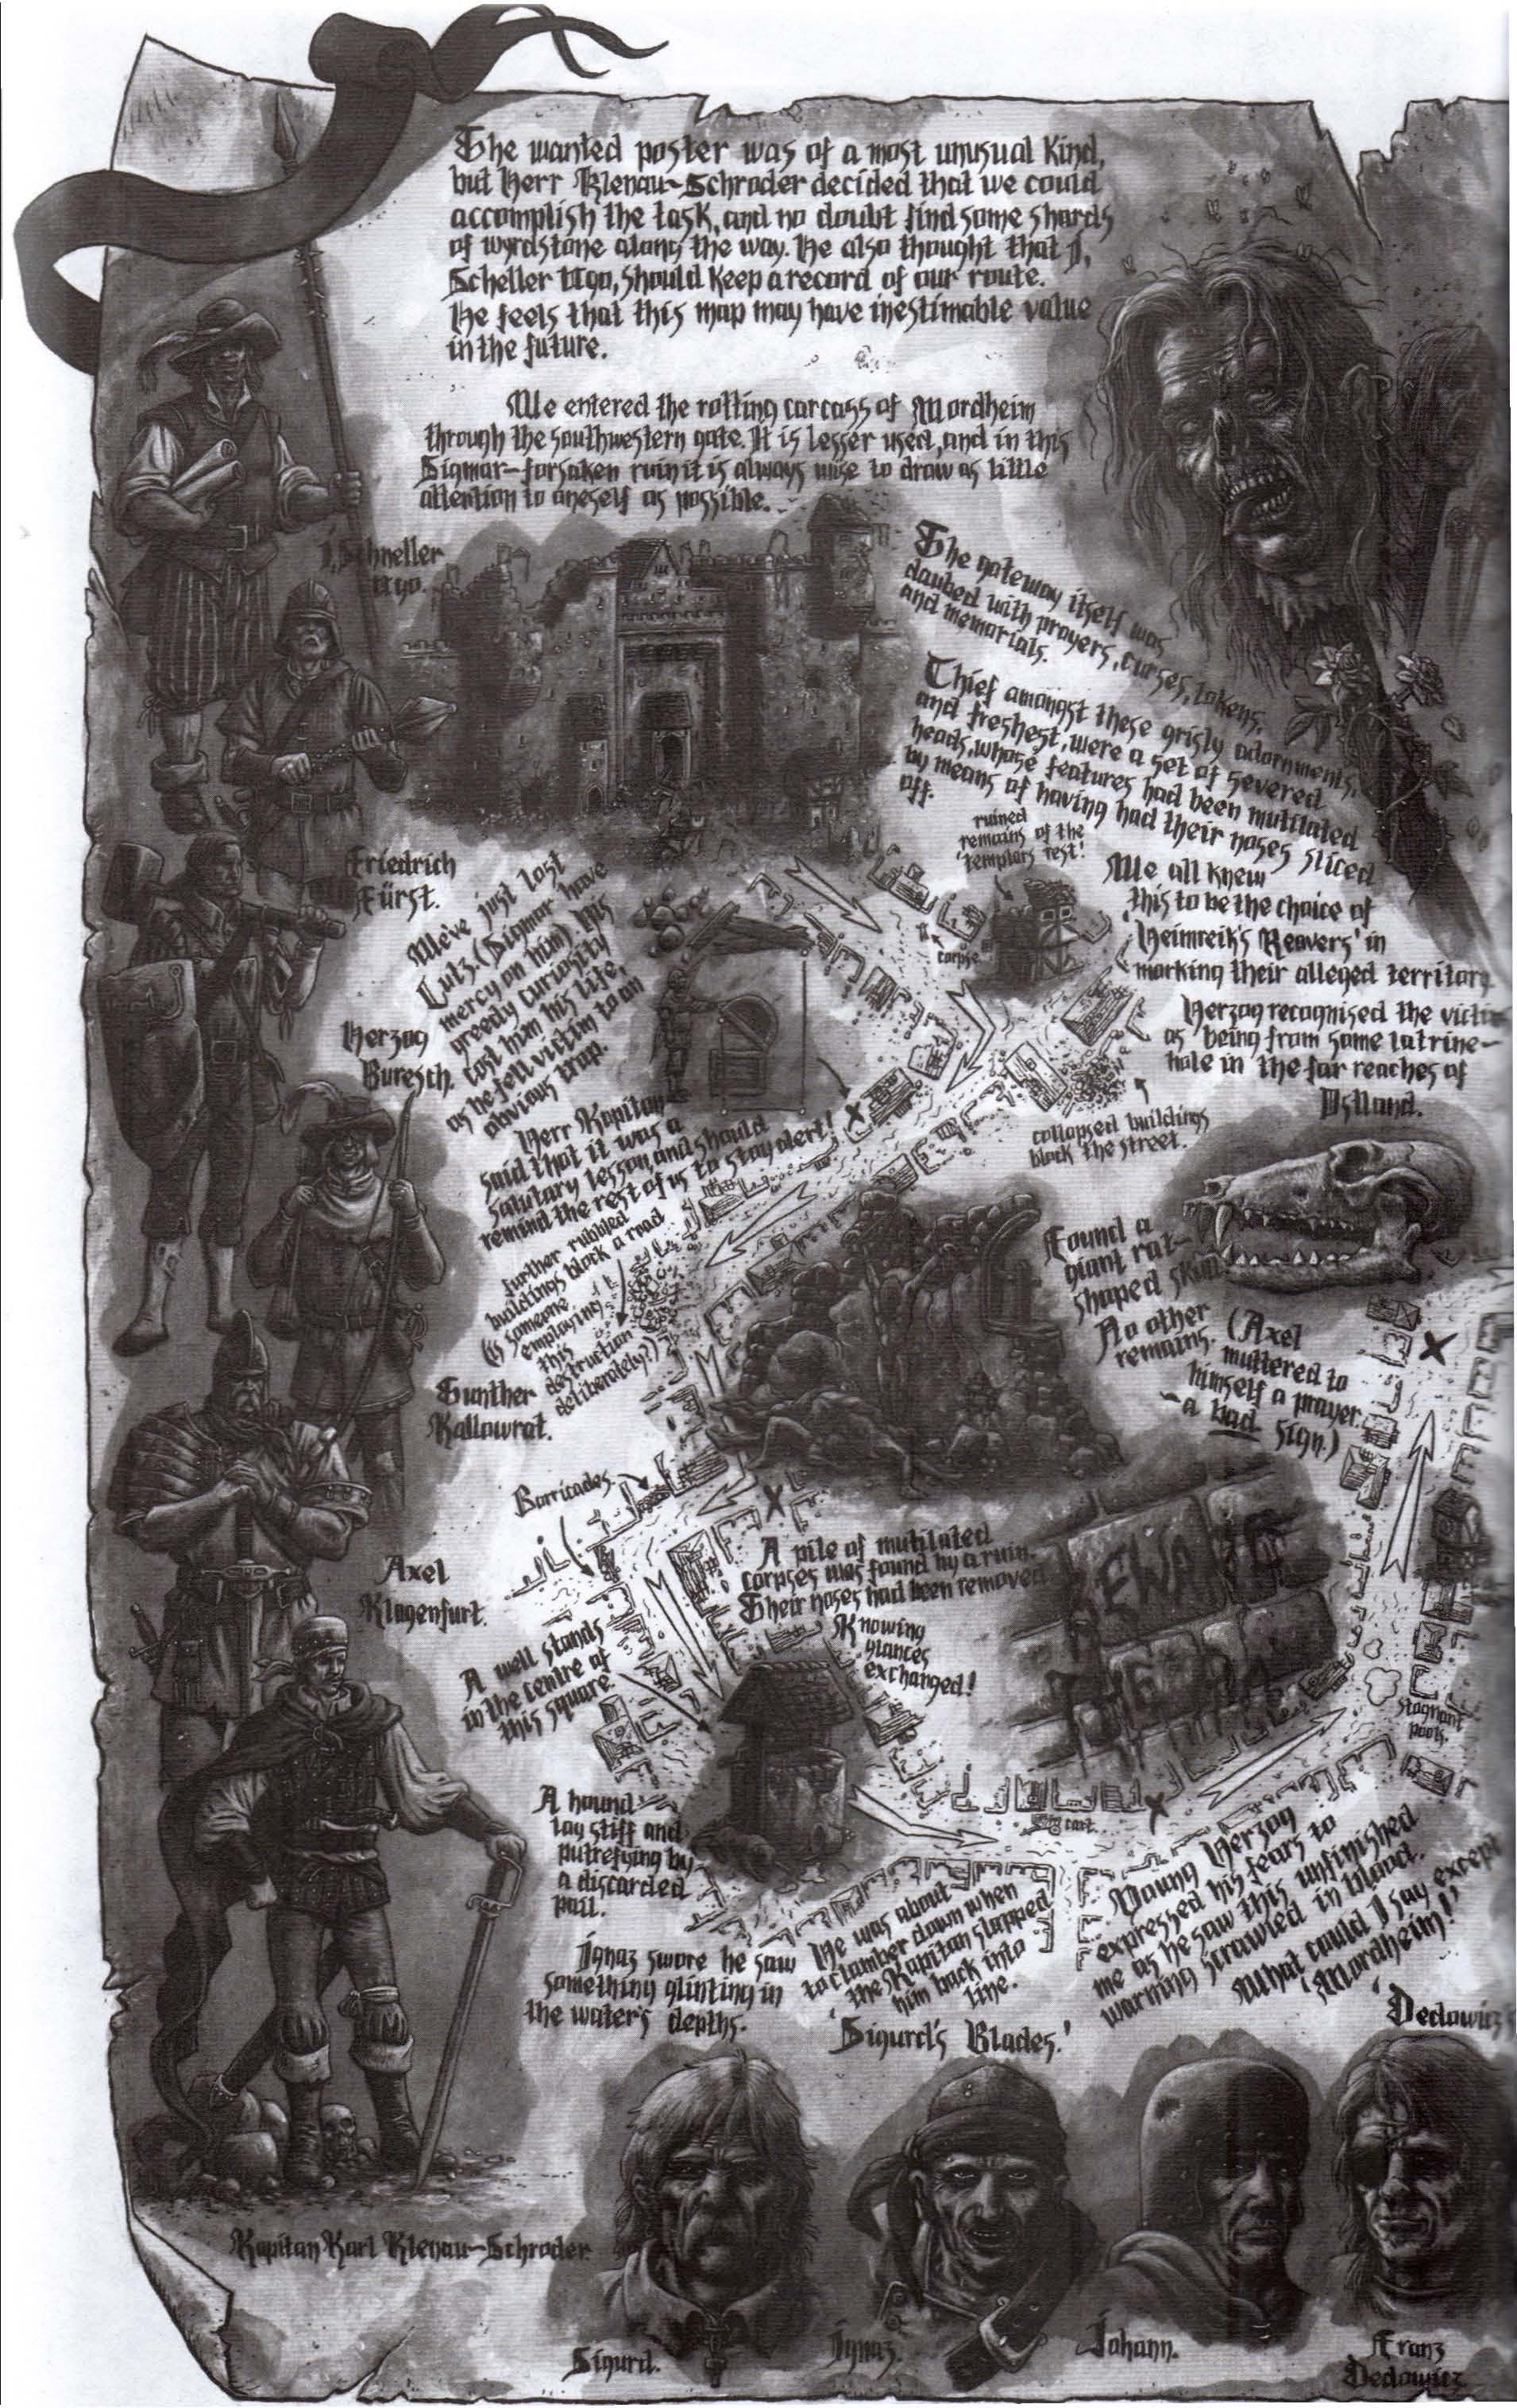 The wanted poster was of a most unusual kind,
but Herr Klenau-Schroder decided that we could
accomplish the task, and no doubt find some shards
of wyrdstone along the way. He also thought that I,
Scheller Ugo, should keep a record of our route.
He feels that this map may have inestimable value
in the future.
We entered the rotting carcass of Mordheim
through the southwestern gate. It is lesser used, and in this
Sigmar-forsaken ruin it is always wise to draw as little
attention to oneself as possible.
I, Schneller
Ugo.
The gateway itself was
daubed with prayers, curses, tokens,
and memorials.
Chief amongst these grisly adornments,
and freshest, were a set of severed
heads, whose features had been mutilated
by means of having had their noses sliced
off.
ruined
remains of the
'templars rest'!
corpse
We all knew
this to be the choice of
'Heimreik's Reavers' in
marking their alleged territory
Herzog recognised the
as being from some latrine-
hole in the far reaches of
Ostland.
Friedrich
Fürst.
We've just lost
Lutz. (Sigmar have
mercy on him). His
greedy curiosity
cost him his life,
as he fell victim to an
obvious trap.
Herzog
Buresch.
Herr Kapitan
said that it was a
salutary lesson, and should
remind the rest of us to stay alert!
collapsed buildings
block the street.
further rubbled
buildings block a road
(is someone
employing
this
destruction
deliberately?)
Found a
giant rat-
shaped skull
No other
remains. (Axel
muttered to
himself a prayer.
- a bad sign.)
Gunther
Kallowrat.
Barricades
A pile of mutilated
corpses was found by a ruin.
Their noses had been removed
Knowing
glances
exchanged!
Axel
Klagenfurt.
A well stands
in the centre of
this square.
EWARE
THE
Stagnant
pools.
A hound
lay stiff and
putrefying by
a discarded
pail.
cart.
Ignaz swore he saw
something glinting in
the water's depths.
He was about
to clamber down when
the Kapitan slapped
him back into
line.
Young Herzog
expressed his fears to
me as he saw this unfinished
warning scrawled in blood.
What could I say except
'Mordheim!'
'Sigurd's Blades.'
'Dedowicz
Kapitan Karl Klenau-Schroder
Sigurd.
Ignaz.
Johann.
Franz
Dedowicz